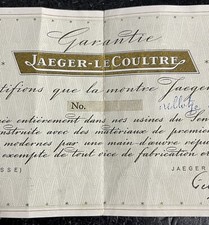 Garantie
JAEGER-LECOULTRE
tifions que la montre Jaeger
No.
ée entièrement dans nos usines du Sen
nstruite avec des matériaux de premier
modernes par une main-d'œuvre répu
exempte de tout vice de fabrication et
SSE)
JAEGER